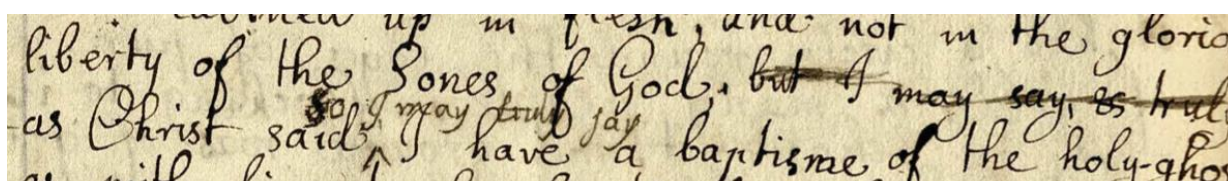 up in flesh, and not in the glorio
liberty of the Sones of God, but I may say, & trul
so I may truly say
as Christ said ^ I have a baptisme of the holy-gho